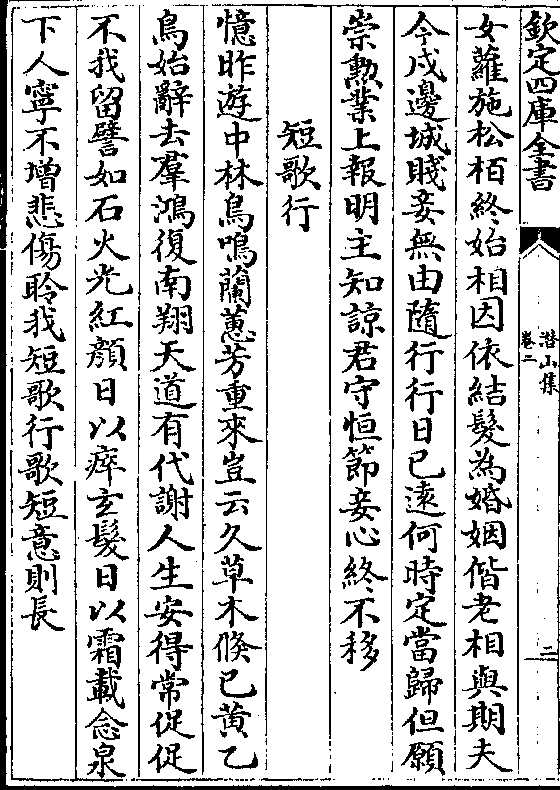 欽定四庫全書
潛山集
卷二
二
女蘿施松栢終始相因依結髮為婚姻偕老相與期夫
今戍邊城賤妾無由隨行行日已逺何時定當歸但願
崇勲業上報明主知諒君守恒節妾心終不移
短歌行
憶昨遊中林鳥鳴蘭蕙芳重來豈云久草木倏已黄乙
鳥始辭去羣鴻復南翔天道有代謝人生安得常促促
不我留譬如石火光紅顔日以瘁玄髮日以霜載念泉
下人寧不增悲傷聆我短歌行歌短意則長